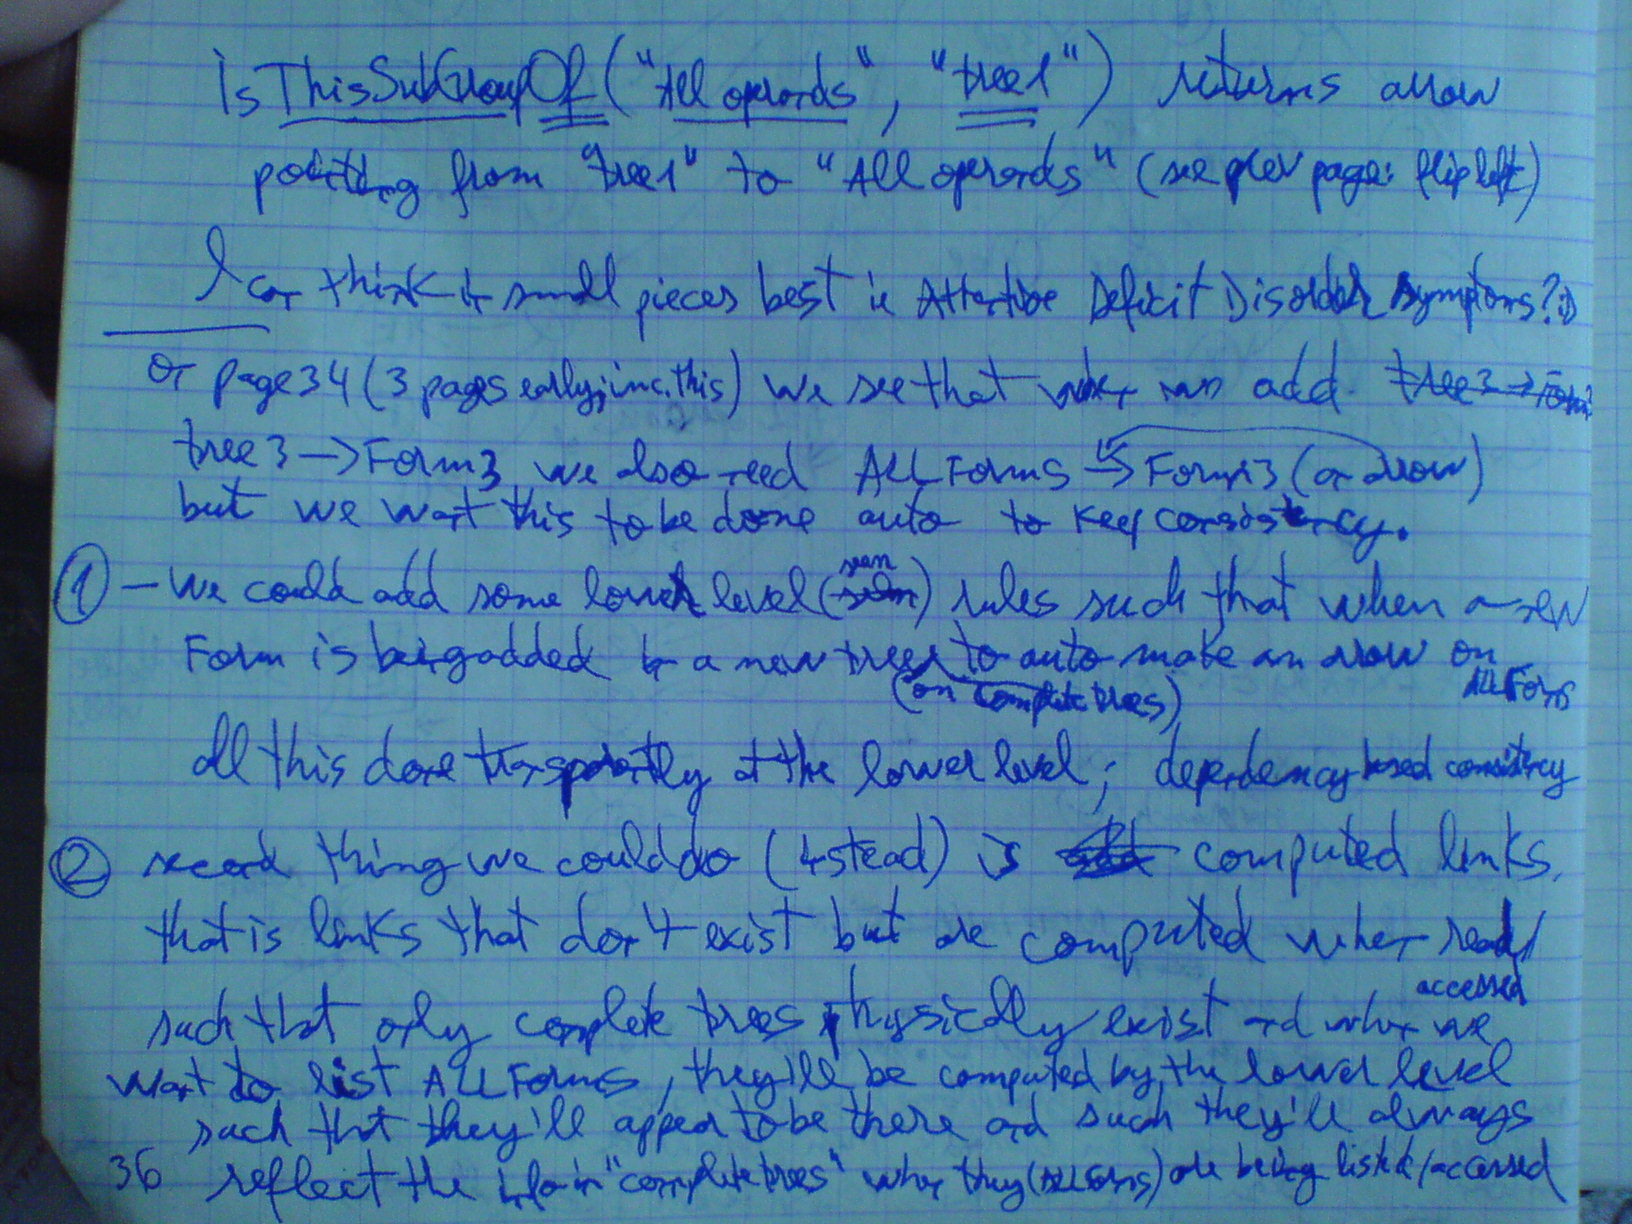 IsThisSubGroupOf ("All operands", "tree1") returns arrow
pointing from "tree1" to "All operands" (see prev page: flip left)
I can think in small pieces best ie Attentive Deficit Disorder symptoms? :)
on page 34 (3 pages early, inc. this) we see that when we add tree3 → Form3
tree3 → Form3 we also need ALL Forms → Form3 (an arrow)
but we want this to be done auto to keep consistency.
① – we could add some lower level (seen) rules such that when a new
Form is being added to a new tree to auto make an arrow on ALL Forms
(on complete trees)
all this done transparently at the lower level; dependency based consistency
② second thing we could do (instead) is computed links.
that is links that don't exist but are computed when read/
accessed
such that only complete trees physically exist and when we
want to list ALL Forms, they'll be computed by the lower level
such that they'll appear to be there and such they'll always
36 reflect the info in "complete trees" when they (ALL Forms) are being listed/accessed